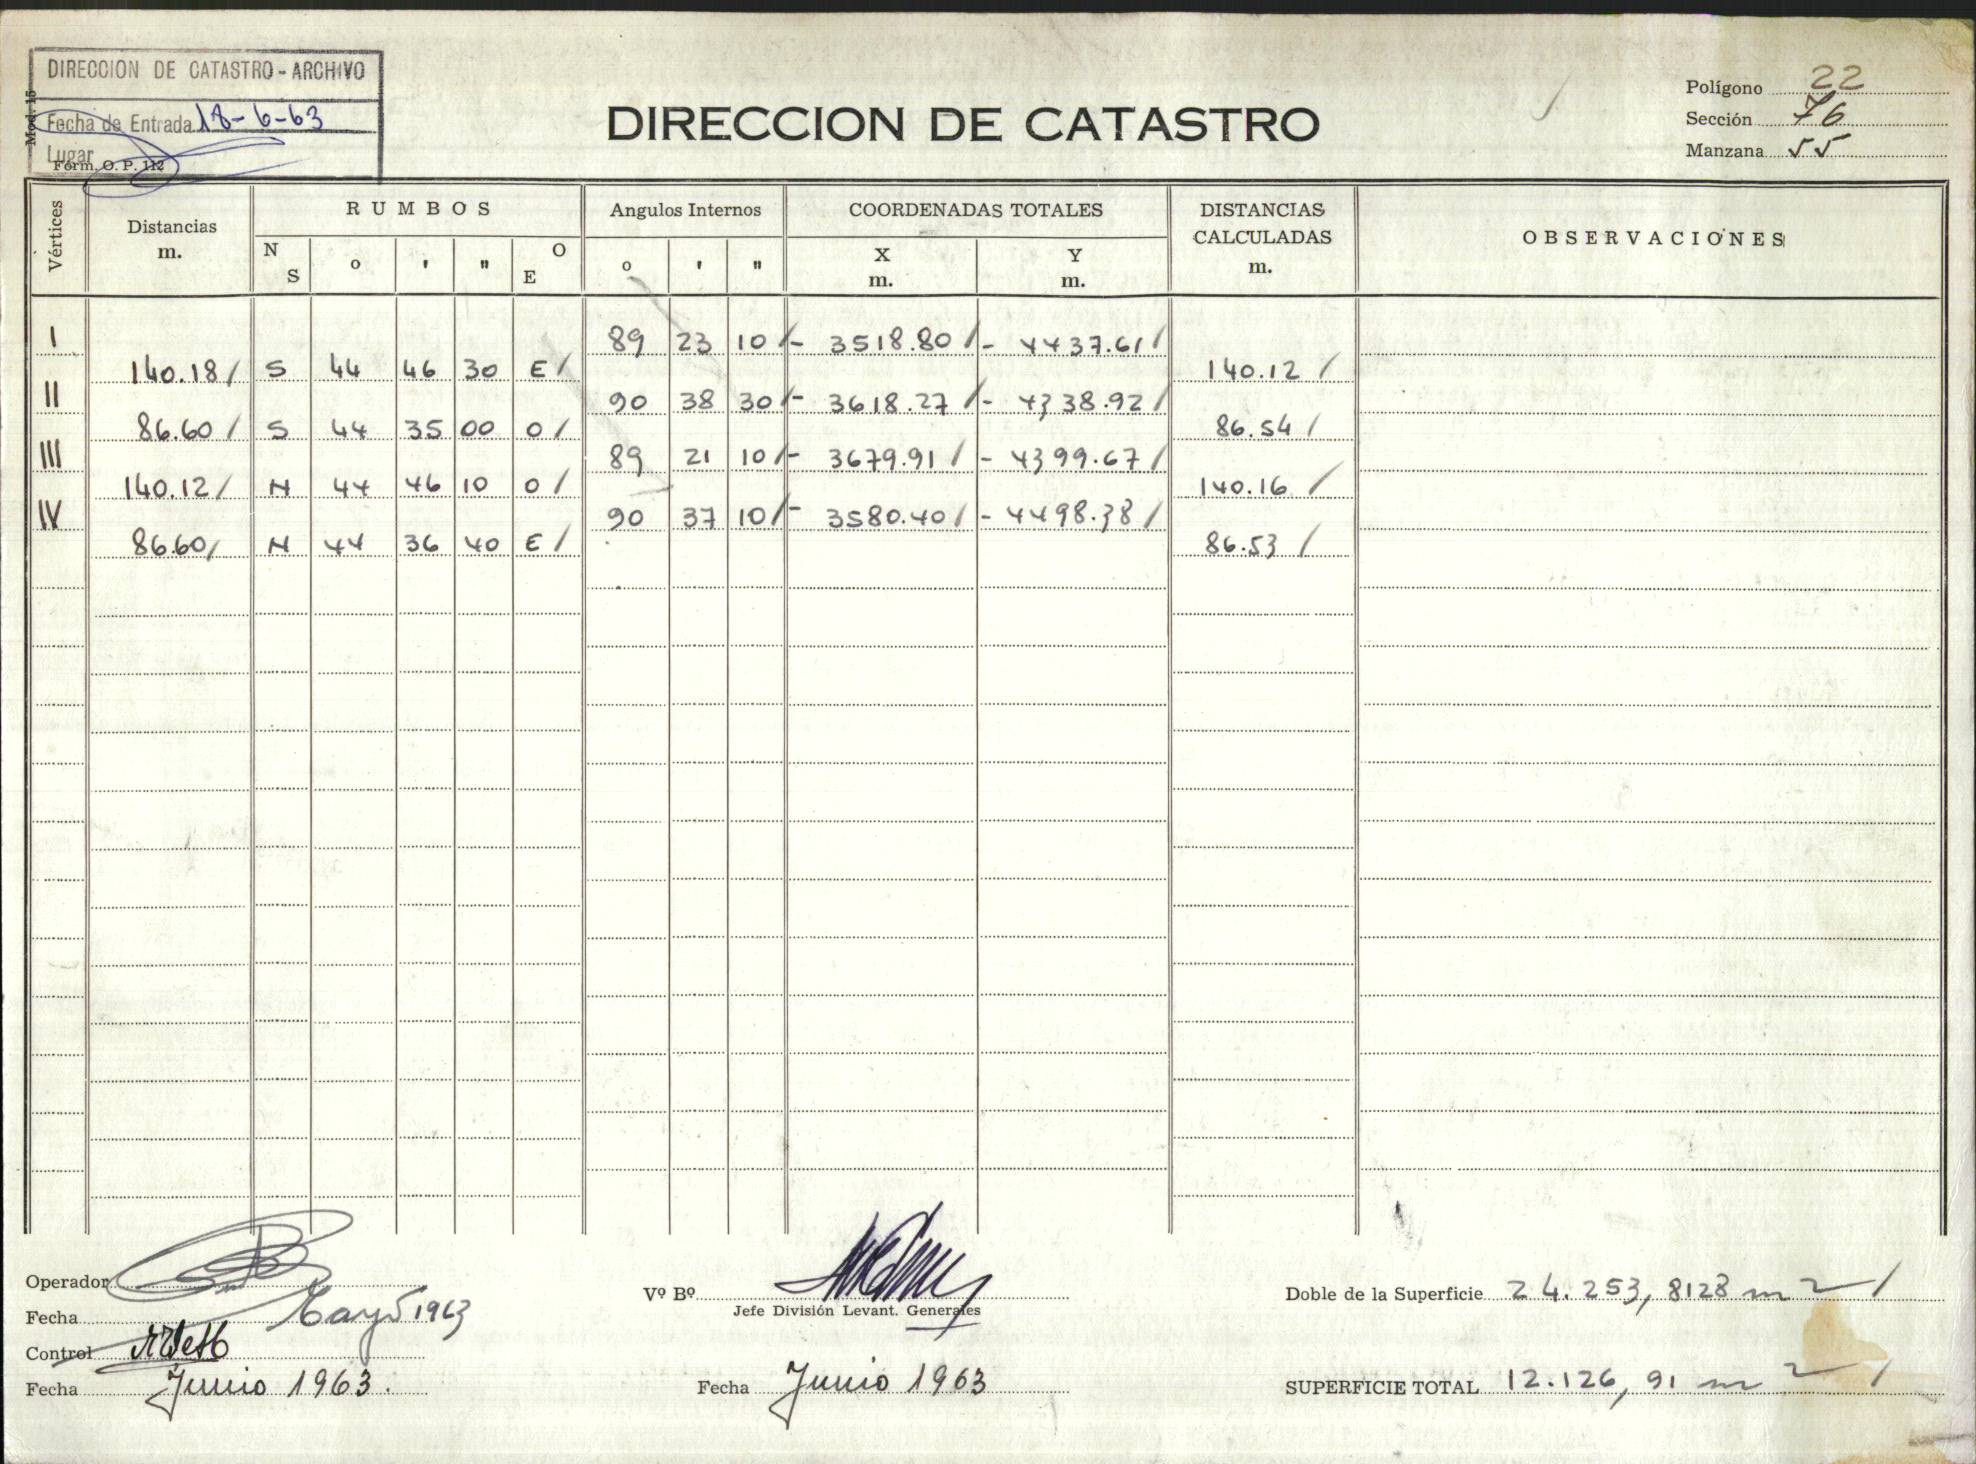 DIRECCION DE CATASTRO - ARCHIVO
Mod. 15
Fecha de Entrada 18-6-63
Lugar
Form. O. P. 112
DIRECCION DE CATASTRO
Polígono 22
Sección 76
Manzana 55
Vértices
Distancias m.
RUMBOS
N S o ' " O E
Angulos Internos
o ' "
COORDENADAS TOTALES
X m. Y m.
DISTANCIAS CALCULADAS m.
OBSERVACIONES
I 89 23 10 / - 3518.80 / - 4437.61 /
140.18 / S 44 46 30 E / 140.12 /
II 90 38 30 / - 3618.27 / - 4338.92 /
86.60 / S 44 35 00 O / 86.54 /
III 89 21 10 / - 3679.91 / - 4399.67 /
140.12 / N 44 46 10 O / 140.16 /
IV 90 37 10 / - 3580.40 / - 4498.38 /
86.60 / N 44 36 40 E / 86.53 /
Operador
Fecha Mayo 1963
Control
Fecha Junio 1963.
Vº Bº
Jefe División Levant. Generales
Fecha Junio 1963
Doble de la Superficie 24.253,8128 m2 /
SUPERFICIE TOTAL 12.126,91 m2 /